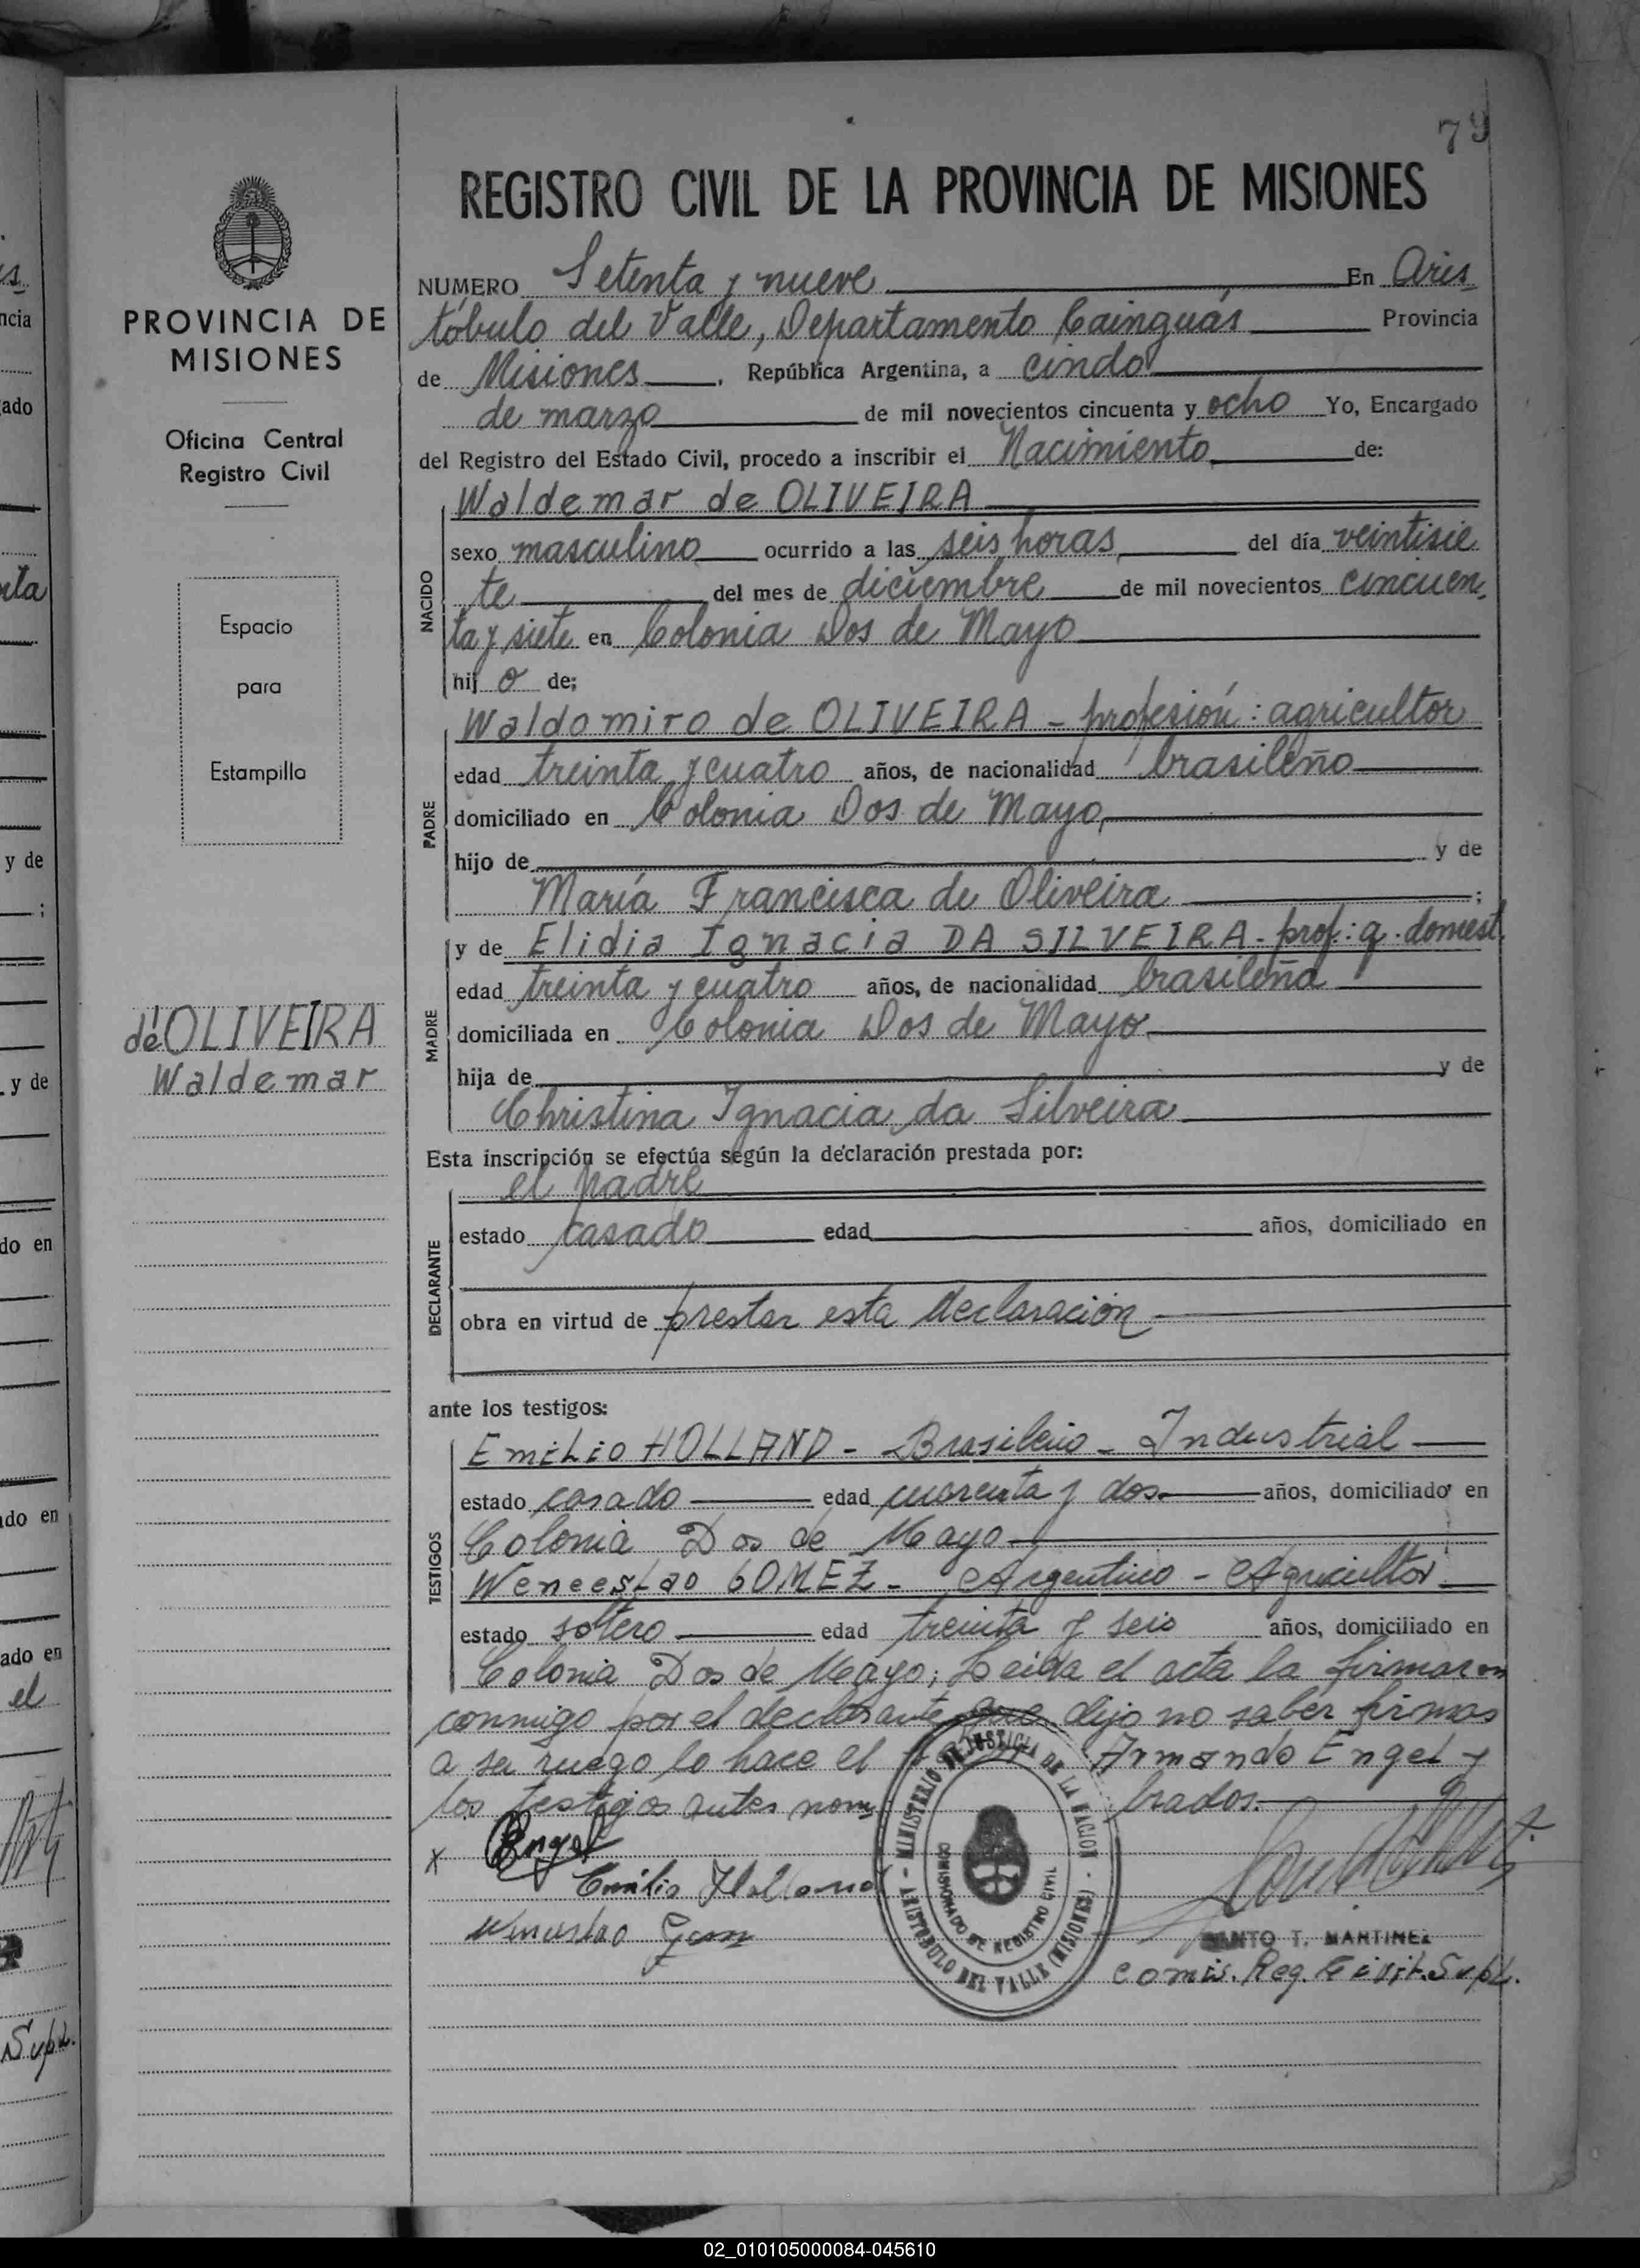 79
REGISTRO CIVIL DE LA PROVINCIA DE MISIONES
NUMERO Setenta y nueve En Aris
tóbulo del Valle, Departamento Cainguás Provincia
de Misiones, República Argentina, a cindo
de marzo de mil novecientos cincuenta y ocho Yo, Encargado
del Registro del Estado Civil, procedo a inscribir el Nacimiento de:
NACIDO
Waldemar de OLIVEIRA
sexo masculino ocurrido a las seis horas del día veintisie
te del mes de diciembre de mil novecientos cincuen
ta y siete en Colonia Dos de Mayo
hij o de;
PADRE
Waldomiro de OLIVEIRA - profesión: agricultor
edad treinta y cuatro años, de nacionalidad brasileño
domiciliado en Colonia Dos de Mayo,
hijo de y de
María Francisca de Oliveira ;
MADRE
y de Elidia Ignacia DA SILVEIRA - prof.: q. domest.
edad treinta y cuatro años, de nacionalidad brasileña
domiciliada en Colonia Dos de Mayo
hija de y de
Christina Ignacia da Silveira
Esta inscripción se efectúa según la declaración prestada por:
DECLARANTE
el padre
estado casado edad años, domiciliado en
obra en virtud de prestar esta declaración
ante los testigos:
TESTIGOS
Emilio HOLLAND - Brasileño - Industrial
estado casado edad cuarenta y dos años, domiciliado en
Colonia Dos de Mayo
Wenceslao GOMEZ - Argentino - Agricultor
estado soltero edad treinta y seis años, domiciliado en
Colonia Dos de Mayo; Leida el acta la firmaron
conmigo por el declarante que dijo no saber firmar
a su ruego lo hace el Armando Engel y
los testigos antes nom brados.
x Engel
Emilio Holland
Wenceslao Gomez
MINISTERIO DE JUSTICIA DE LA NACION
COMISIONADO DE REGISTRO CIVIL
ARISTOBULO DEL VALLE (MISIONES)
SANTO T. MARTINEZ
Comis. Reg. Civil. Supl.
PROVINCIA DE
MISIONES
Oficina Central
Registro Civil
Espacio
para
Estampilla
de OLIVEIRA
Waldemar
ncia
ado
y de
;
y de
do en
do en
ado en
el
Supl.
02_010105000084-045610